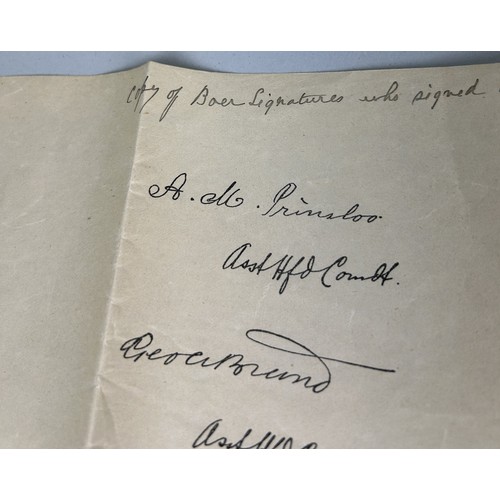 Copy of Boer Signatures who signed
A. M. Prinsloo
Asst Hfd Comdt.
Geo A Brand
Asst Hfd